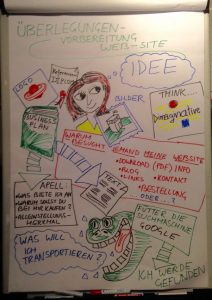 ÜBERLEGUNGEN-
VORBEREITUNG
WEB-SITE
IDEE
LOGO
BILDER
THINK....
BUSINESS
PLAN
WARUM
BESUCHT
JEMAND MEINE WEBSITE
• DOWNLOAD (PDF) INFO
• BLOG
• LINKS • KONTAKT
• BESTELLUNG
ODER...?
TEXT
APELL:
WAS BIETE ICH AN
WARUM SOLLST DU
BEI MIR KAUFEN?
WAS WILL
ICH
TRANSPORTIEREN?
FÜTTER DIE
SUCHMASCHINE
GOOGLE
ICH WERDE
GEFUNDEN